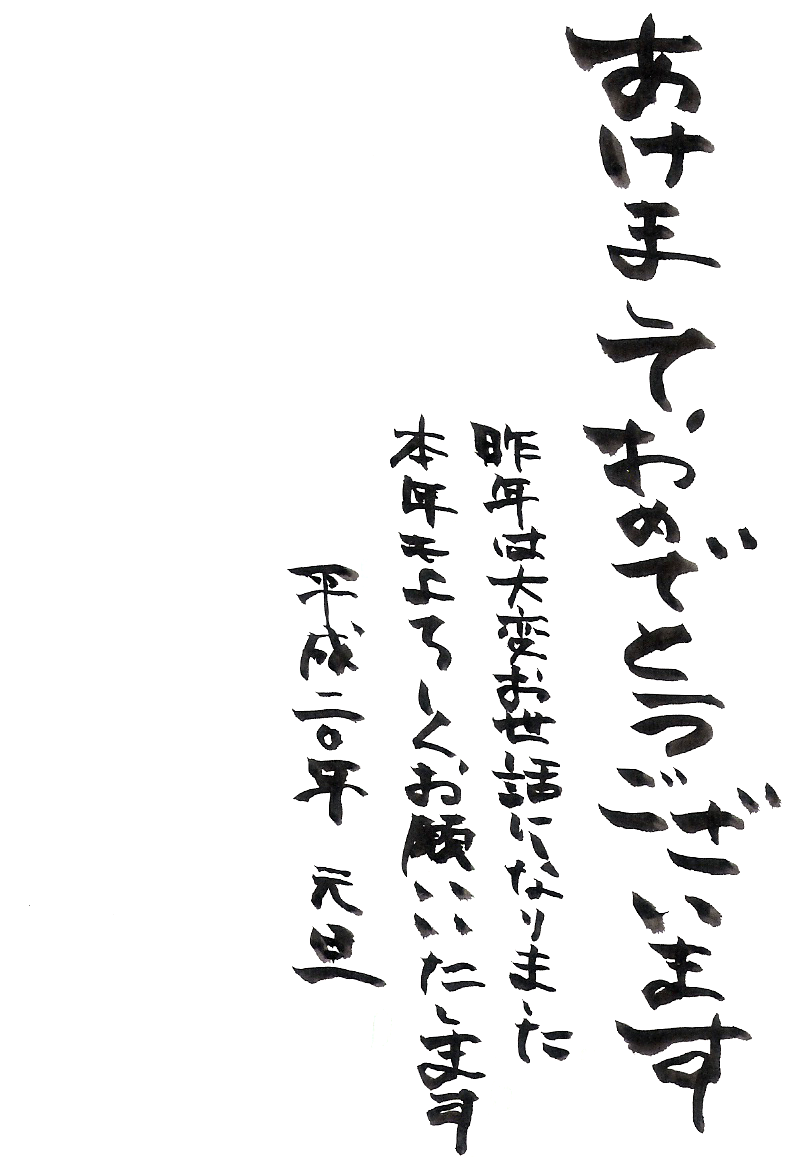 あけましておめでとうございます
昨年は大変お世話になりました
本年もよろしくお願いいたします
平成二〇年 元旦